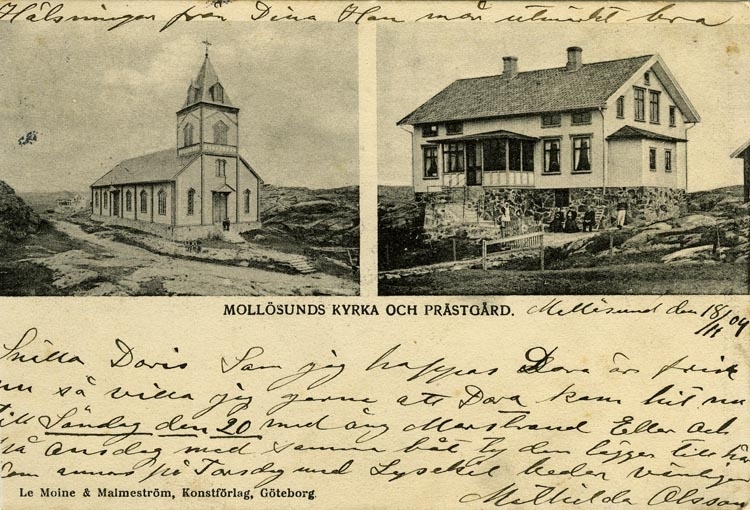 Hälsningar från Dina Han mår utmärkt bra
MOLLÖSUNDS KYRKA OCH PRÄSTGÅRD.
Mollösund den 18/11 04
Snilla Doris Som jag hoppas Dora är frisk
nu så villa jag gerna att Dora kom hit nu
till Söndag den 20 med ång Marstrand Eller och
på Onsdag med samma båt ty den lägger till här
om annars på Torsdag med Lysekil beder vänligen
Mathilda Olsson
Le Moine & Malmeström, Konstförlag, Göteborg.